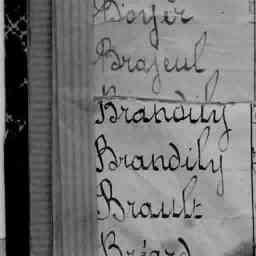 Boyer
Brajeul
Brandily
Brandily
Brault
Bréard